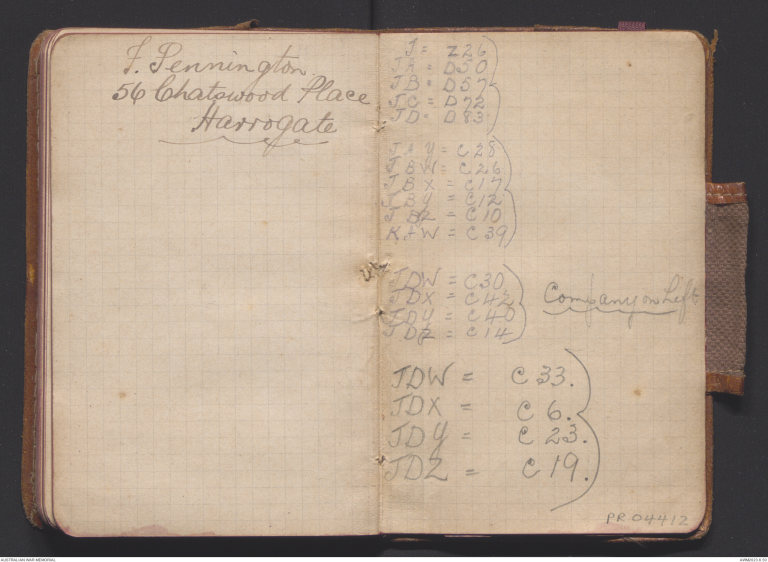 F. Pennington,
56 Chatswood Place
Harrogate
J = Z26
JA = D50
JB = D57
JC = D72
JD = D83
JAY = C28
JBW = C26
JBX = C17
JBY = C12
JBZ = C10
KAW = C39
JDW = C30
JDX = C42
JDY = C40
JDZ = C14
Company on Left
JDW = C 33.
JDX = C 6.
JDY = C 23.
JDZ = C 19.
PR 04412
AUSTRALIAN WAR MEMORIAL